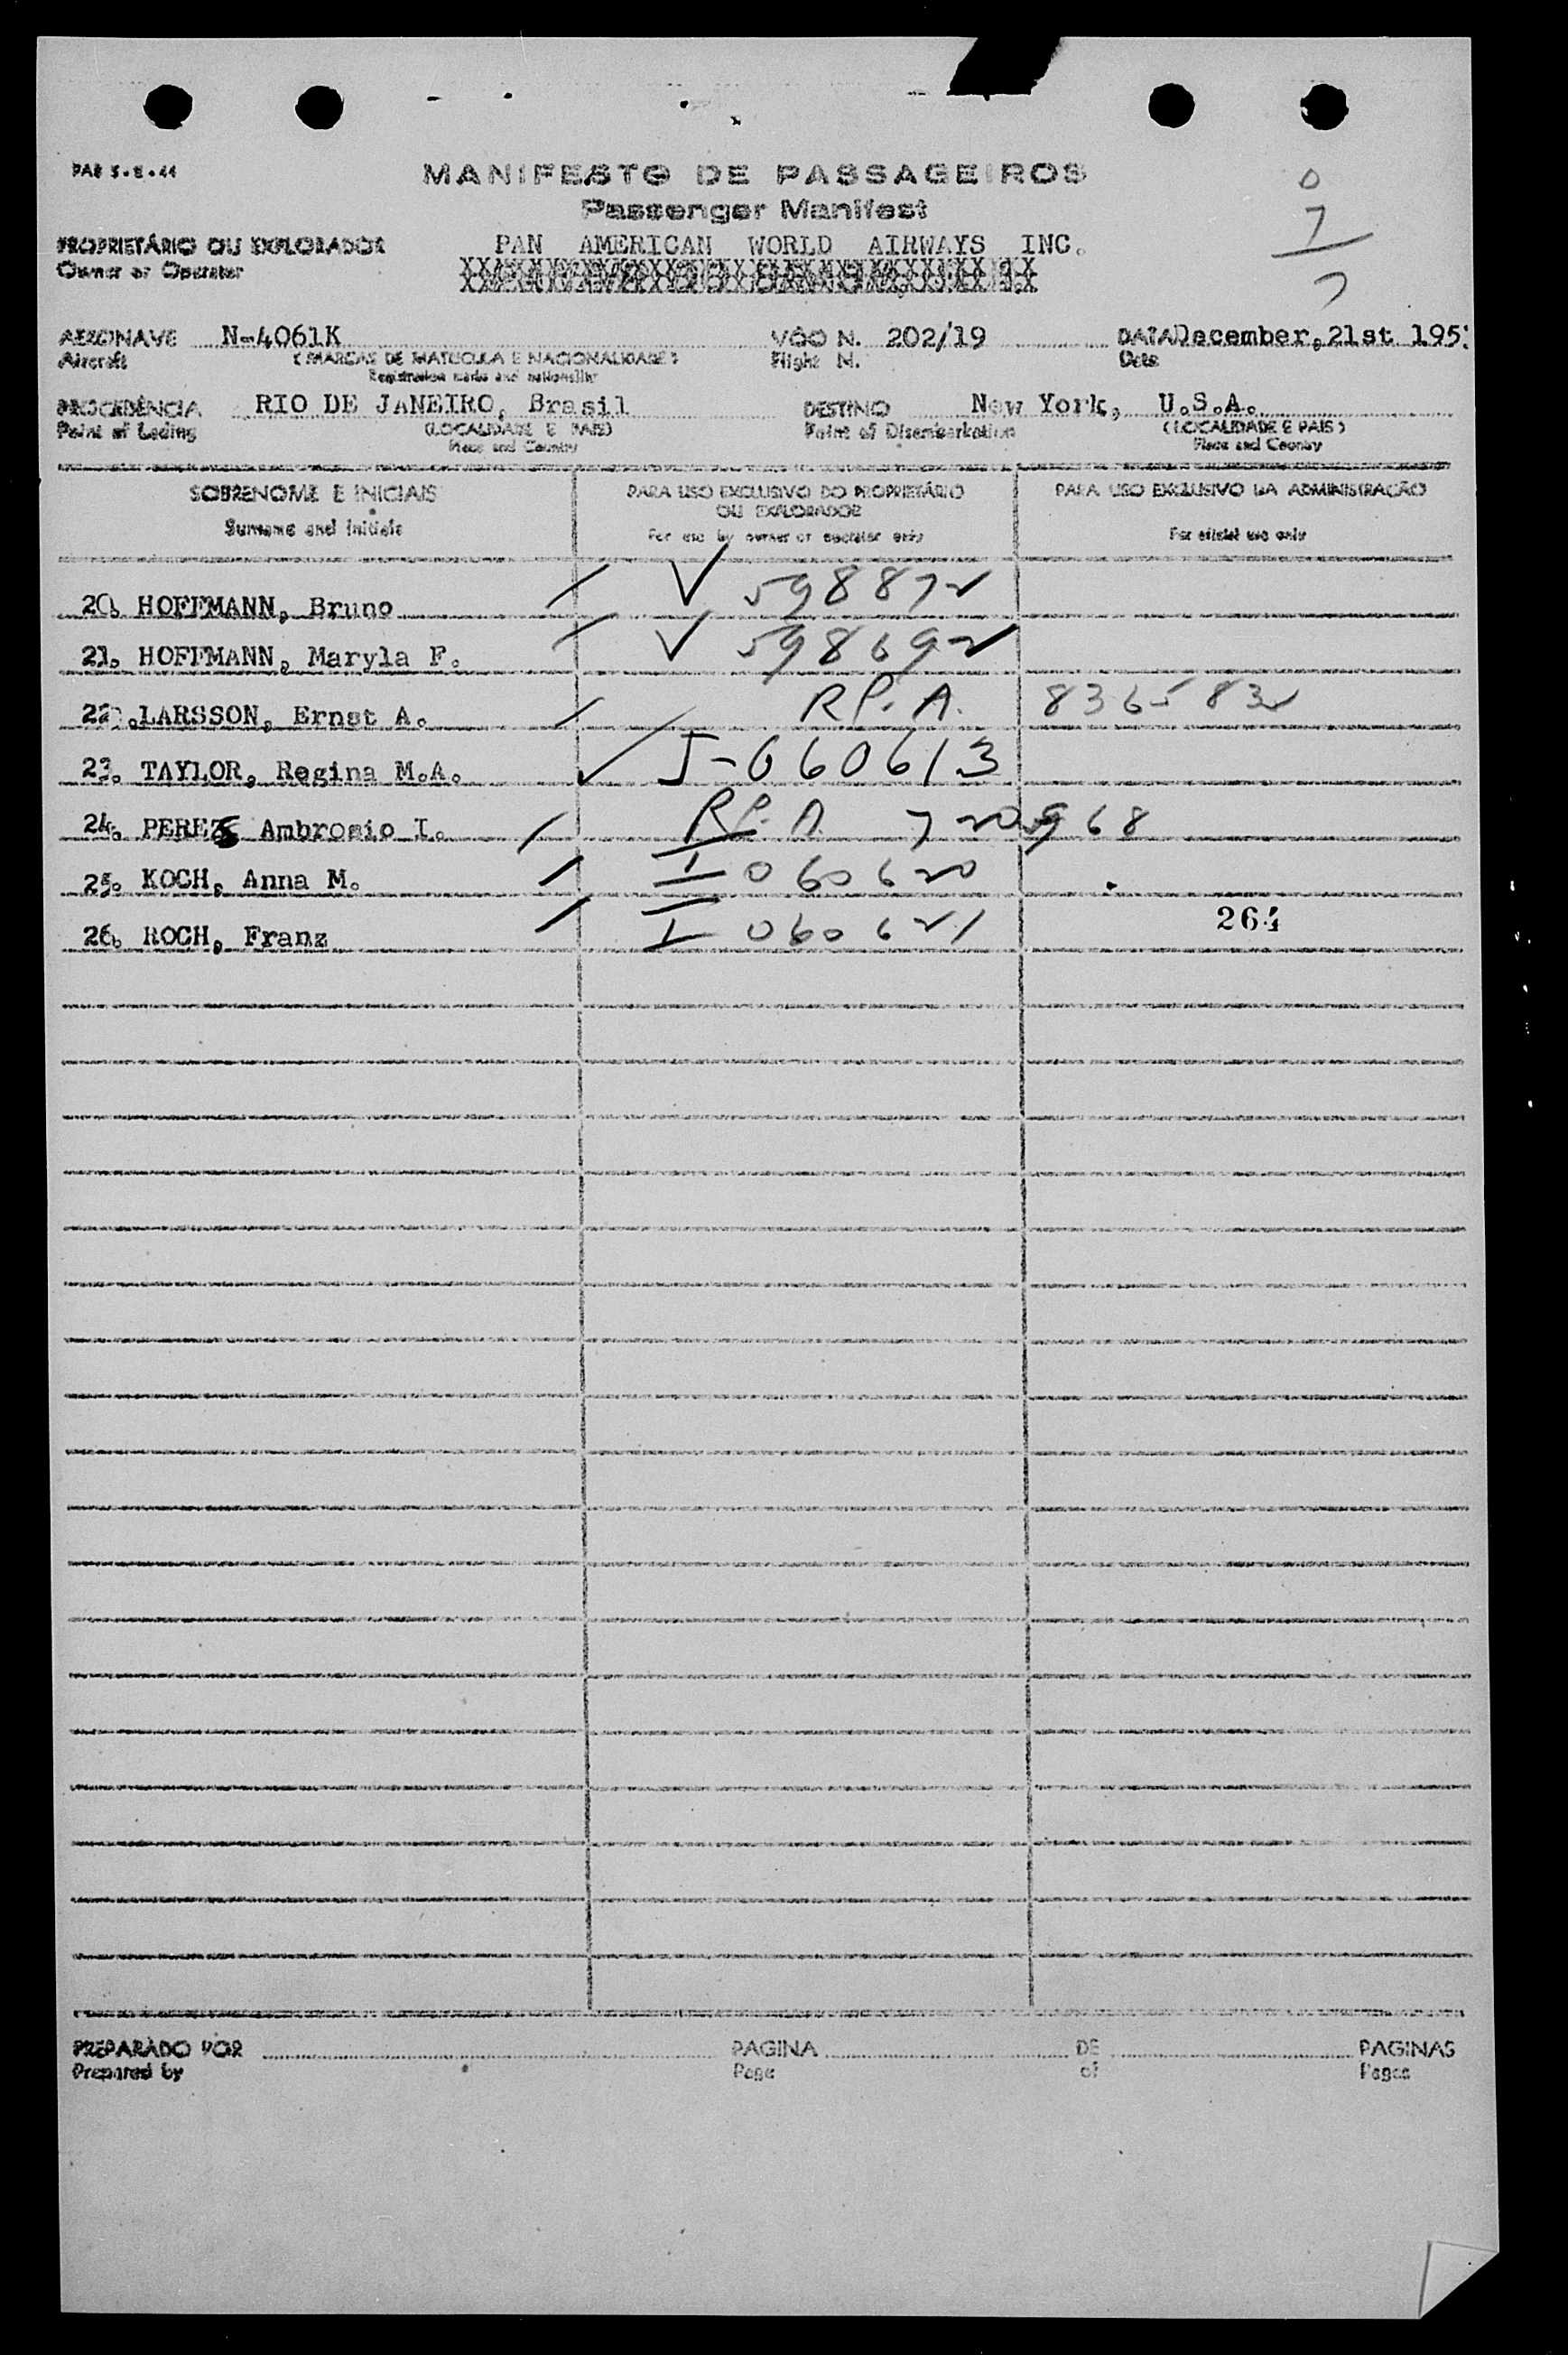 PAB 5-E-44
MANIFESTO DE PASSAGEIROS
Passenger Manifest
0
7
7
PROPRIETÁRIO OU EXPLORADOR PAN AMERICAN WORLD AIRWAYS INC.
Owner or Operator
AERONAVE N-4061K VÔO N. 202/19 DATA December, 21st 195
Aircraft (MARCAS DE MATRICULA E NACIONALIDADE) Flight N. Date
Registration marks and nationality
PROCEDÊNCIA RIO DE JANEIRO, Brasil DESTINO New York, U.S.A.
Point of Lading (LOCALIDADE E PAIS) Point of Disembarkation (LOCALIDADE E PAIS)
Place and Country Place and Country
SOBRENOME E INICIAIS PARA USO EXCLUSIVO DO PROPRIETÁRIO PARA USO EXCLUSIVO DA ADMINISTRAÇÃO
OU EXPLORADOR
Surname and initials For use by owner or operator only For official use only
20. HOFFMANN, Bruno 598872
21. HOFFMANN, Maryla F. 598692
22.LARSSON, Ernst A. RP.A. 836583
23. TAYLOR, Regina M.A. J-060613
24. PEREZ Ambrosio I. RP.A. 7205968
25. KOCH, Anna M. I 060620
26. KOCH, Franz I 060621
264
PREPARADO POR PAGINA DE PAGINAS
Prepared by Page of Pages